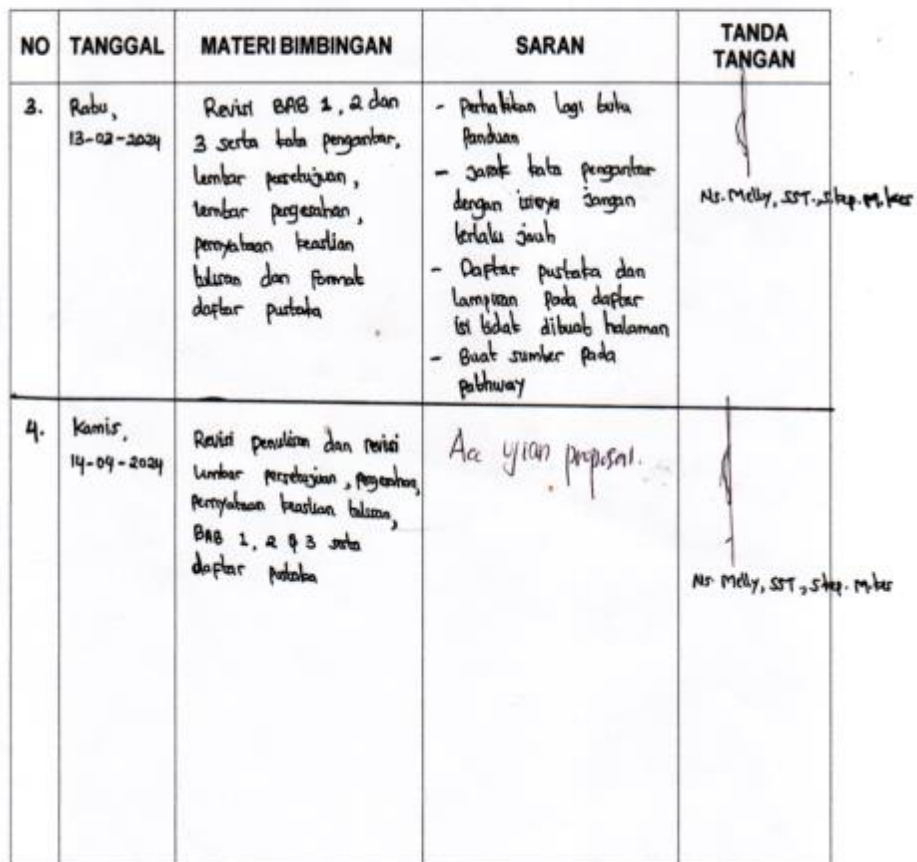 NO TANGGAL MATERI BIMBINGAN SARAN TANDA TANGAN
3.
Rabu,
13-03-2024
Revisi BAB 1, 2 dan
3 serta kata pengantar,
lembar persetujuan,
lembar pengesahan,
pernyataan keaslian
tulisan dan format
daftar pustaka
- Perhatikan lagi buku
Panduan
- Jarak kata pengantar
dengan isinya jangan
terlalu jauh
- Daftar pustaka dan
lampiran pada daftar
isi tidak dibuat halaman
- Buat sumber pada
pathway
Ns. Melly, SST., S.kep. M.kes
4.
Kamis,
14-04-2024
Revisi penulisan dan revisi
lembar persetujuan, pengesahan,
pernyataan keaslian tulisan,
BAB 1, 2 & 3 serta
daftar pustaka
Acc ujian proposal.
Ns. Melly, SST., S.kep. M.kes